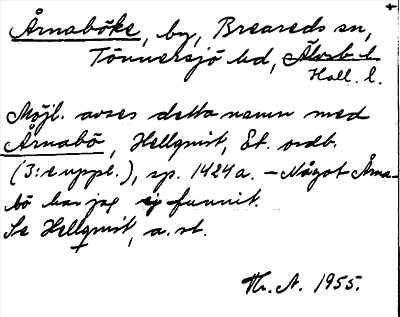 Årnaböke, by, Breareds sn,
Tönnersjö hd, Älvsb. l.
Hall. l.
Möjl. avses detta namn med
Årnabö, Hellquist, Et. ordb.
(3:e uppl.), sp. 1424 a. – Något Årna-
bö har jag ej funnit.
Se Hellquist, a. st.
Th. A. 1955.